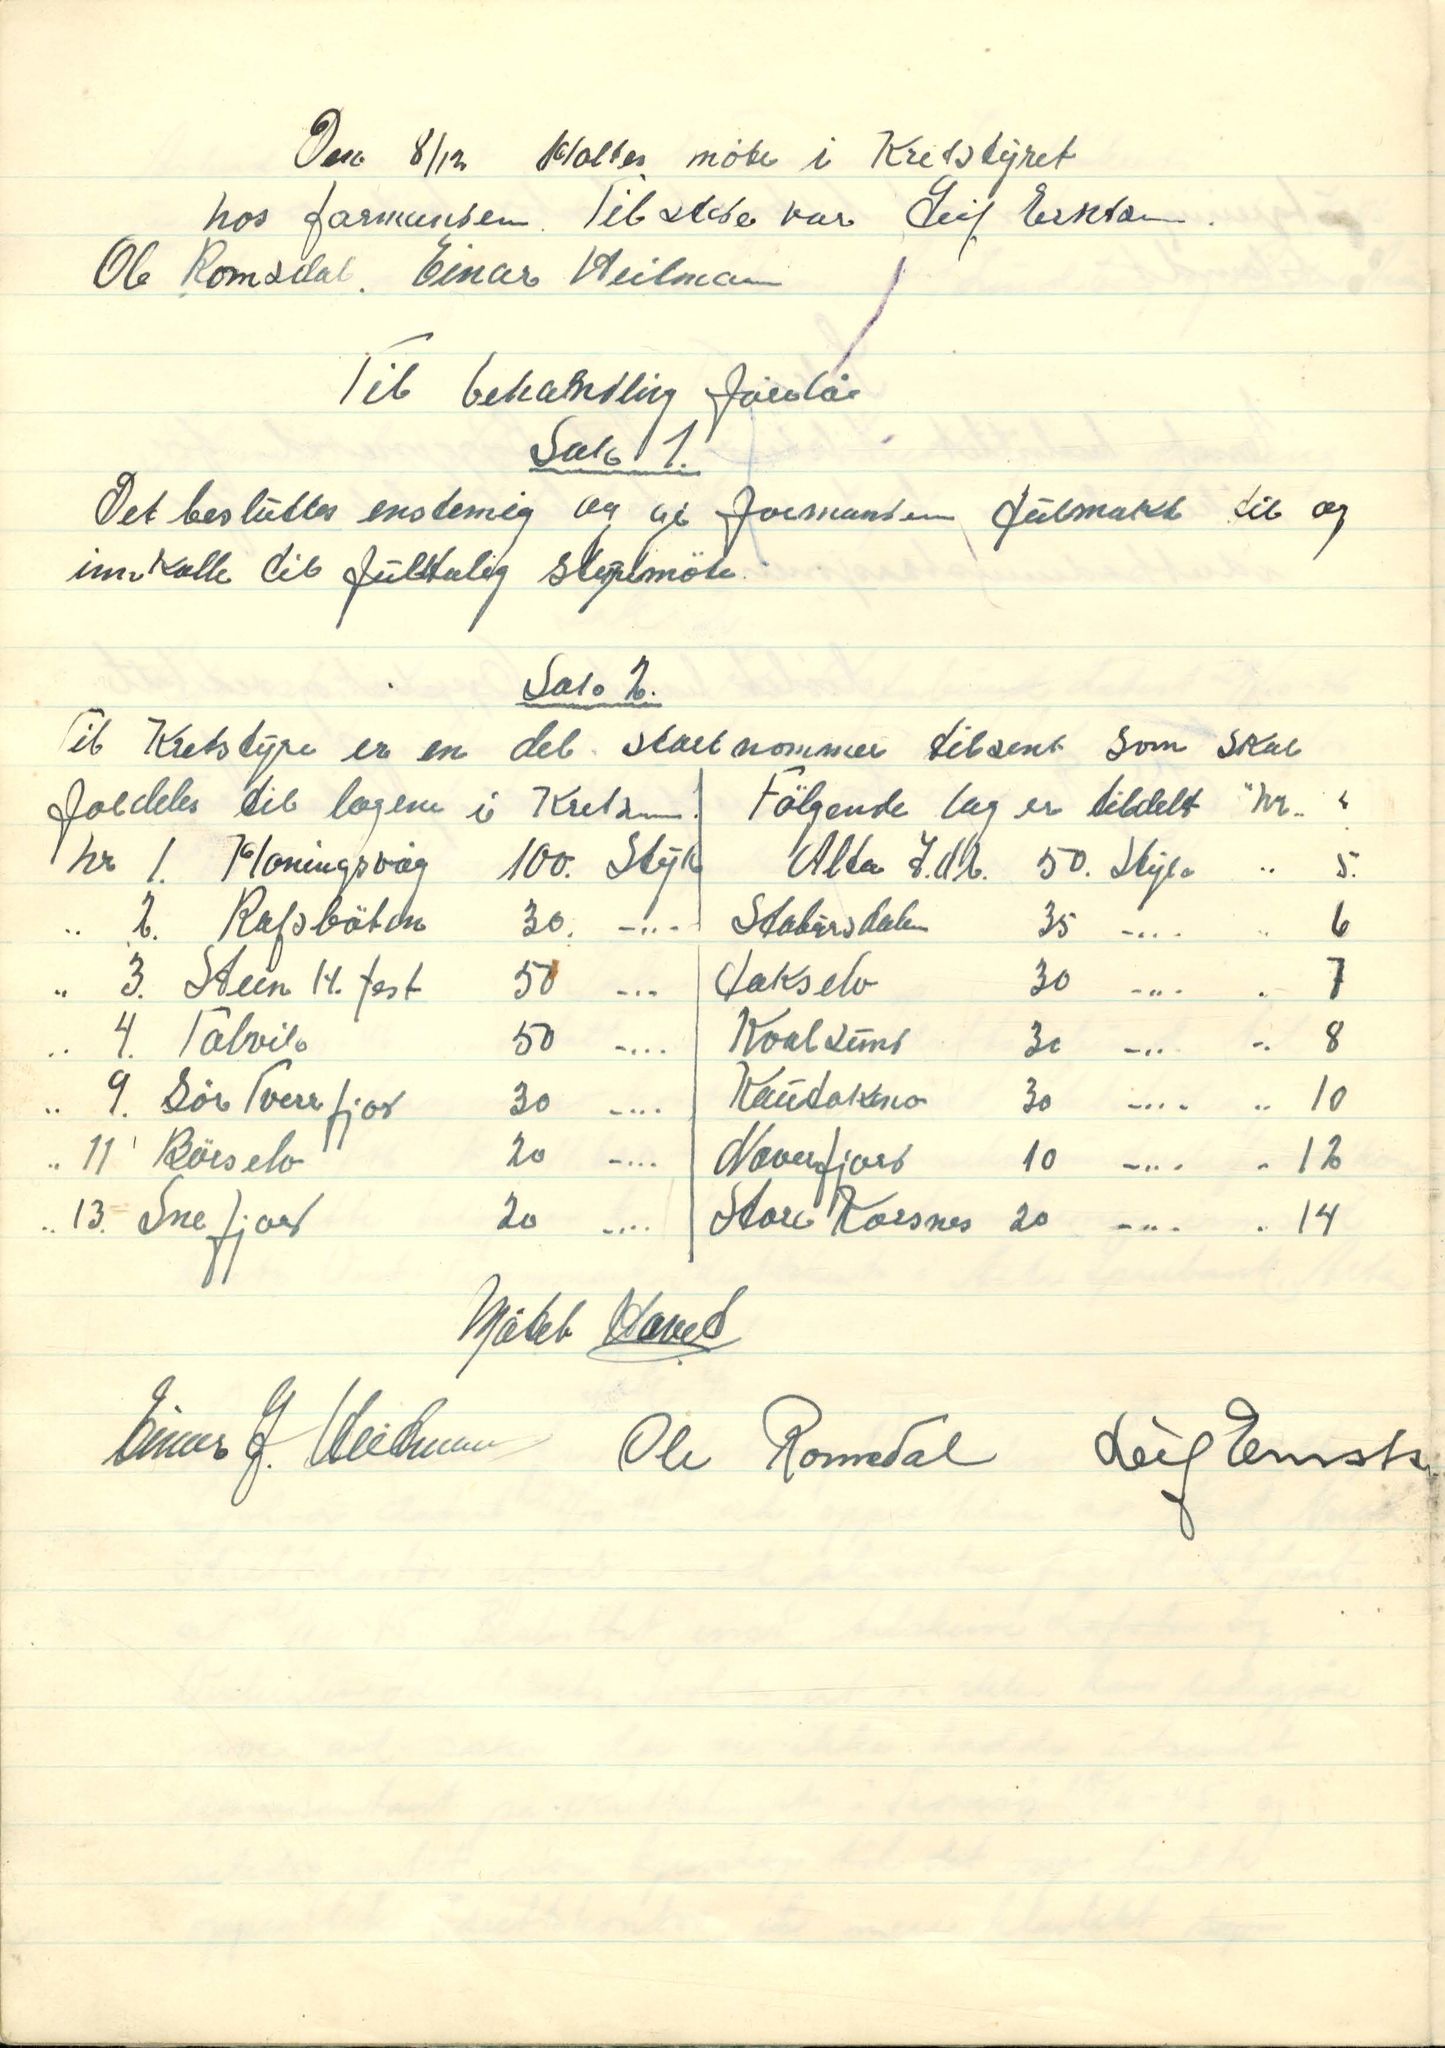 Den 8/12 Holtes möte i Kretstyret
hos formanden. Til stede var Leif
Ole Romsdal. Einar Heitmann
Til behandling forelå
Sak 1.
Det besluttes enstemig og gi formanden fulmakt til og
innkalle til fulltalig styremöte.
Sak 2.
Til Kretstyre er en del startnommer tilsent som skal
fordeles til lagene i Kretsen. Fölgende lag er tildelt "nr. "
nr 1. Honingsvåg 100. Styk Alta I.L. 50. Styk " 5.
" 2. Rafsbotn 30. -"- Stabursdalen 35 -"- " 6
" 3. Stein H.fest 50 -"- Lakselv 30 -"- " 7
" 4. Talvik 50 -"- Kvalsund 30 -"- " 8
" 9. Sör Tverrfjord 30 -"- Kautokeino 30 -"- " 10
" 11 Börselv 20 -"- Neverfjord 10 -"- " 12
" 13. Snefjord 20 -"- Store Korsnes 20 -"- " 14
Mötet Hevet
Einar J. Heitmann Ole Romsdal Leif Ernsts